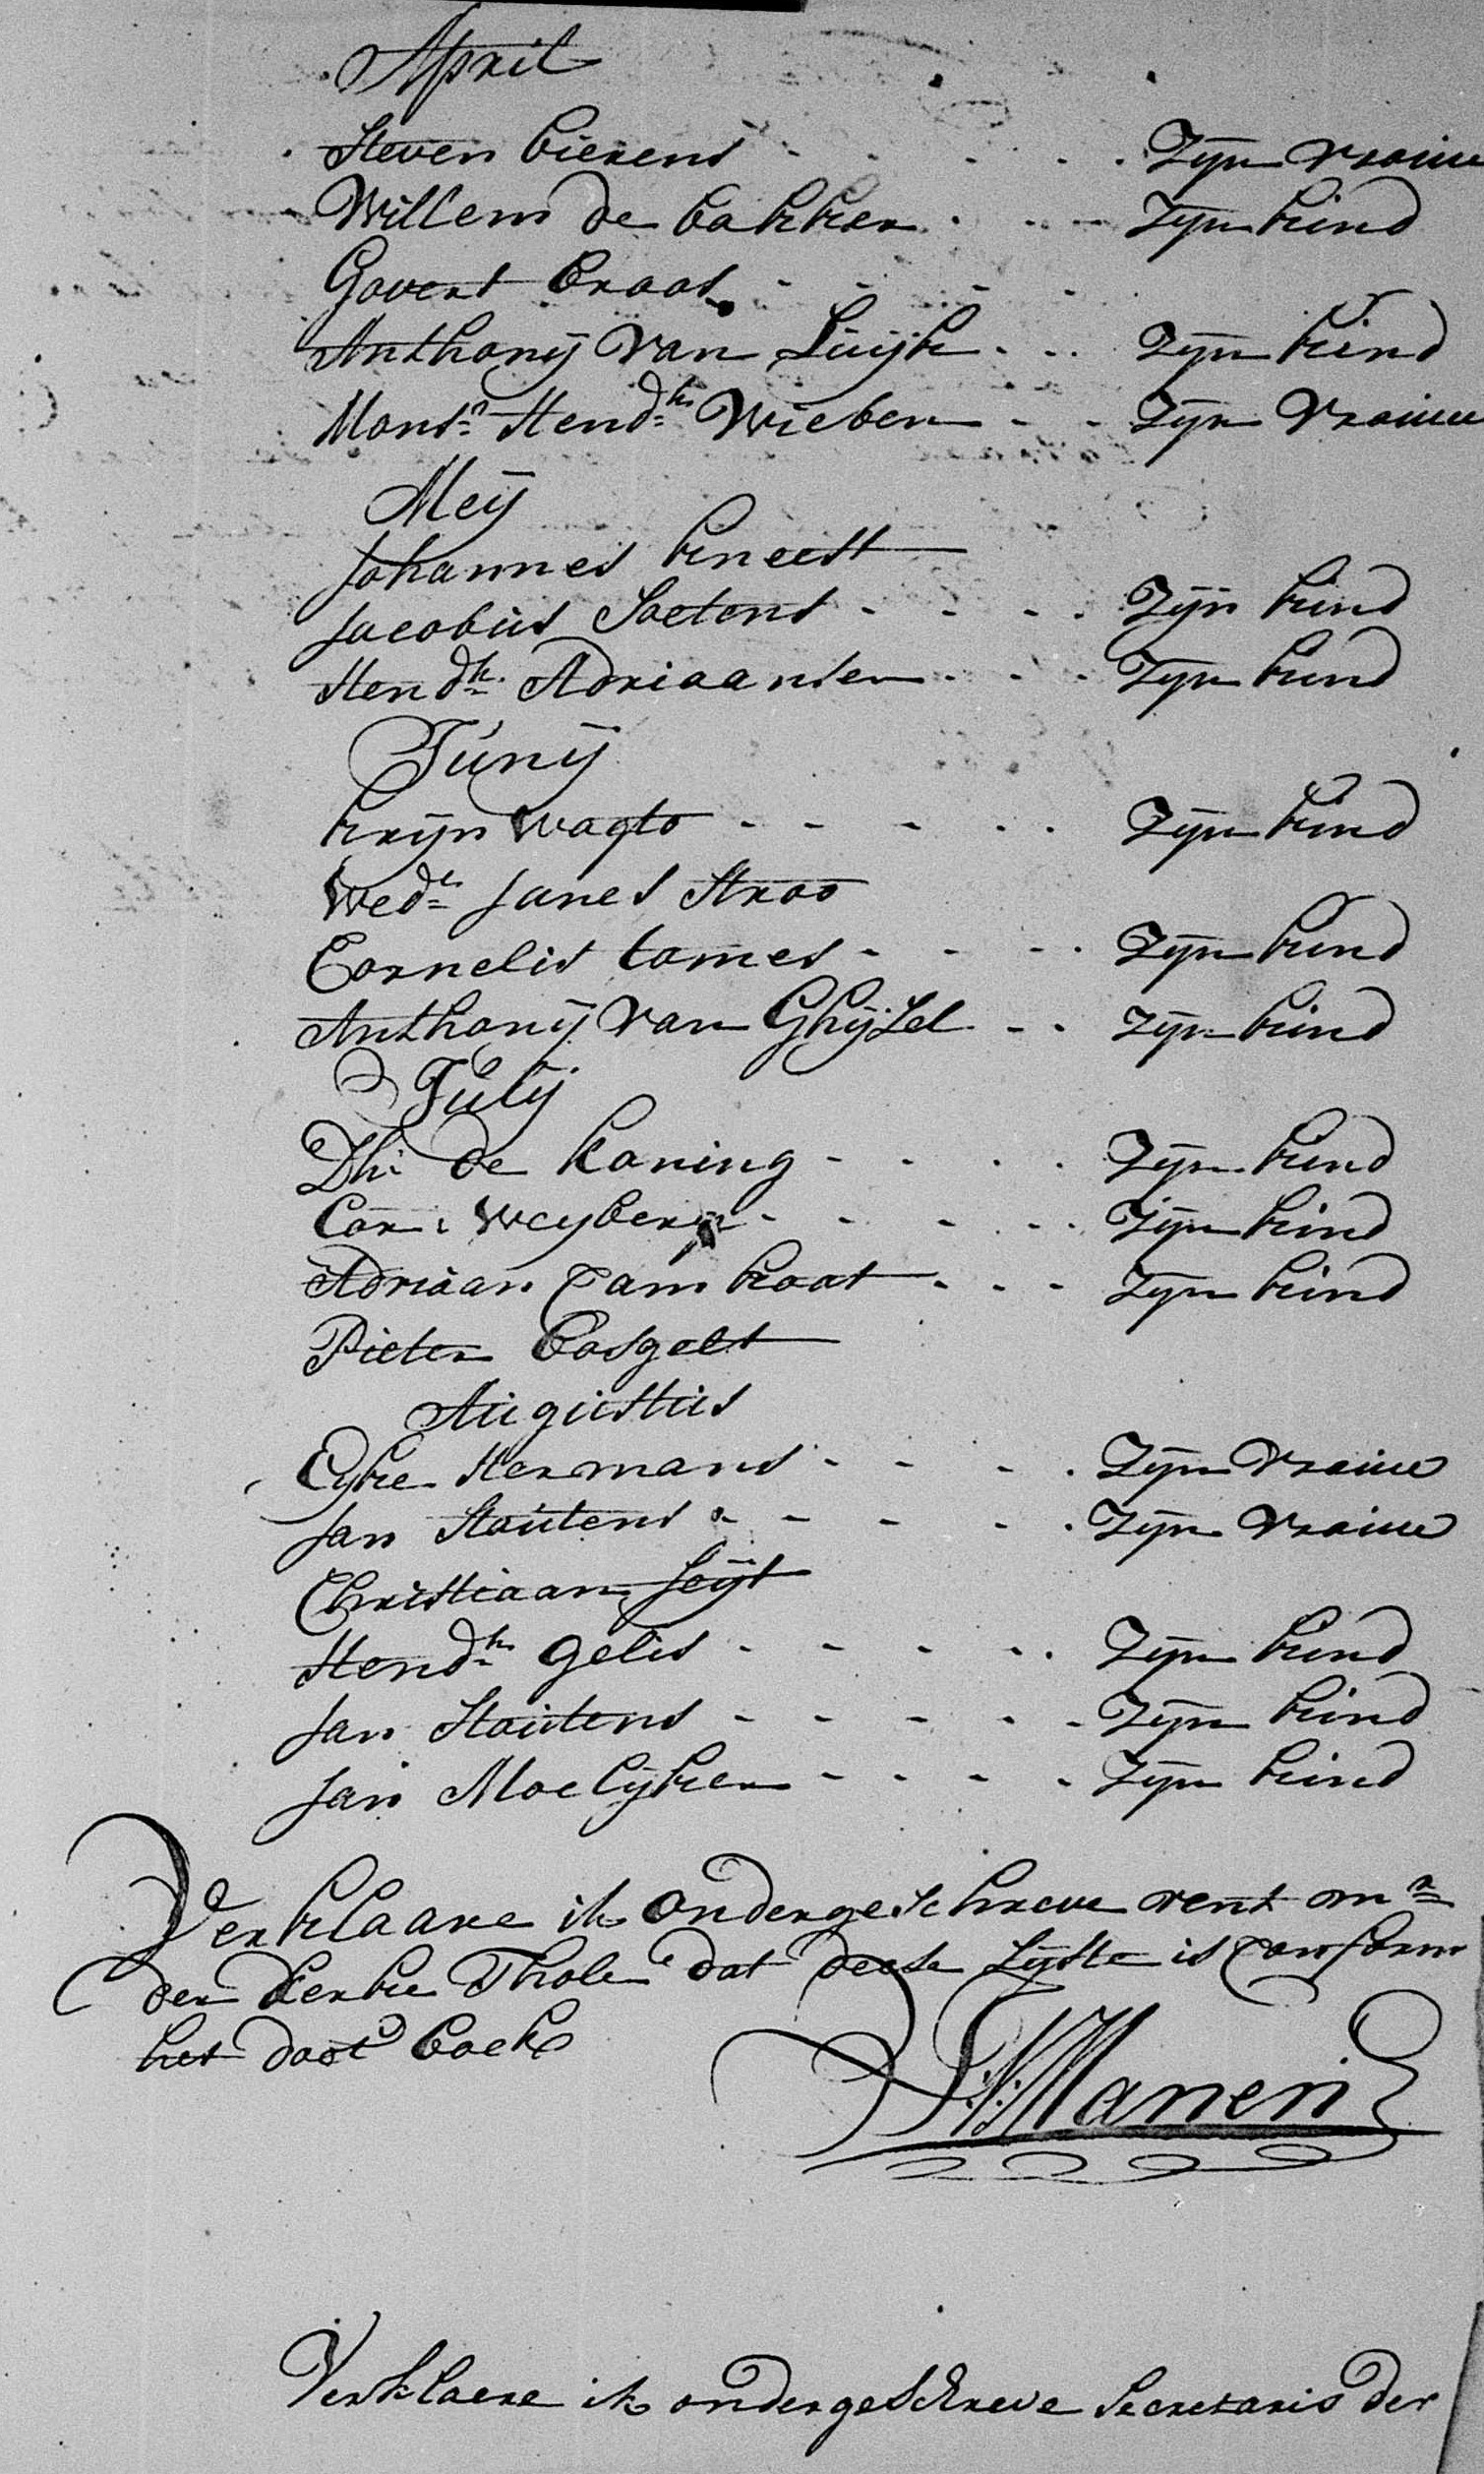 April
Steven bierens - - - - - Zijn vrouw
Willem de bakker - - - Zijn kind
Govert braat - - - -
Anthonij van Luijk - - Zijn kind
Monsr. Hendk. Wieben - - Zijn vrouw
Meij
Johannes kneest
Jacobus Soetens - - - - Zijn kind
Hendk. Adriaansen - - - Zijn kind
Junij
krijn wagto - - - - - Zijn kind
Wede. Janes Stroo
Cornelis tomes - - - - Zijn kind
Anthonij van Ghijsel - - Zijn kind
Julij
Dk: de koning - - - - Zijn kind
Cor: weyberg - - - - - Zijn kind
Adriaan Cam hoot - - - Zijn kind
Pieter bosgelt
Augustus
Eyke Hermans - - - - Zijn vrouw
Jan Stoutens - - - - - Zijn vrouw
Christiaan feijt
Hendk. gelis - - - - - Zijn kind
Jan Stoutens - - - - - Zijn kind
Jan Moelijker - - - - Zijn kind
Verklaare ik ondergeschreve rentmr.
der kerke Thole dat deese Lijste is Conform
het doot boek
Manen
Verklaere ik ondergeschreve Secretaris der